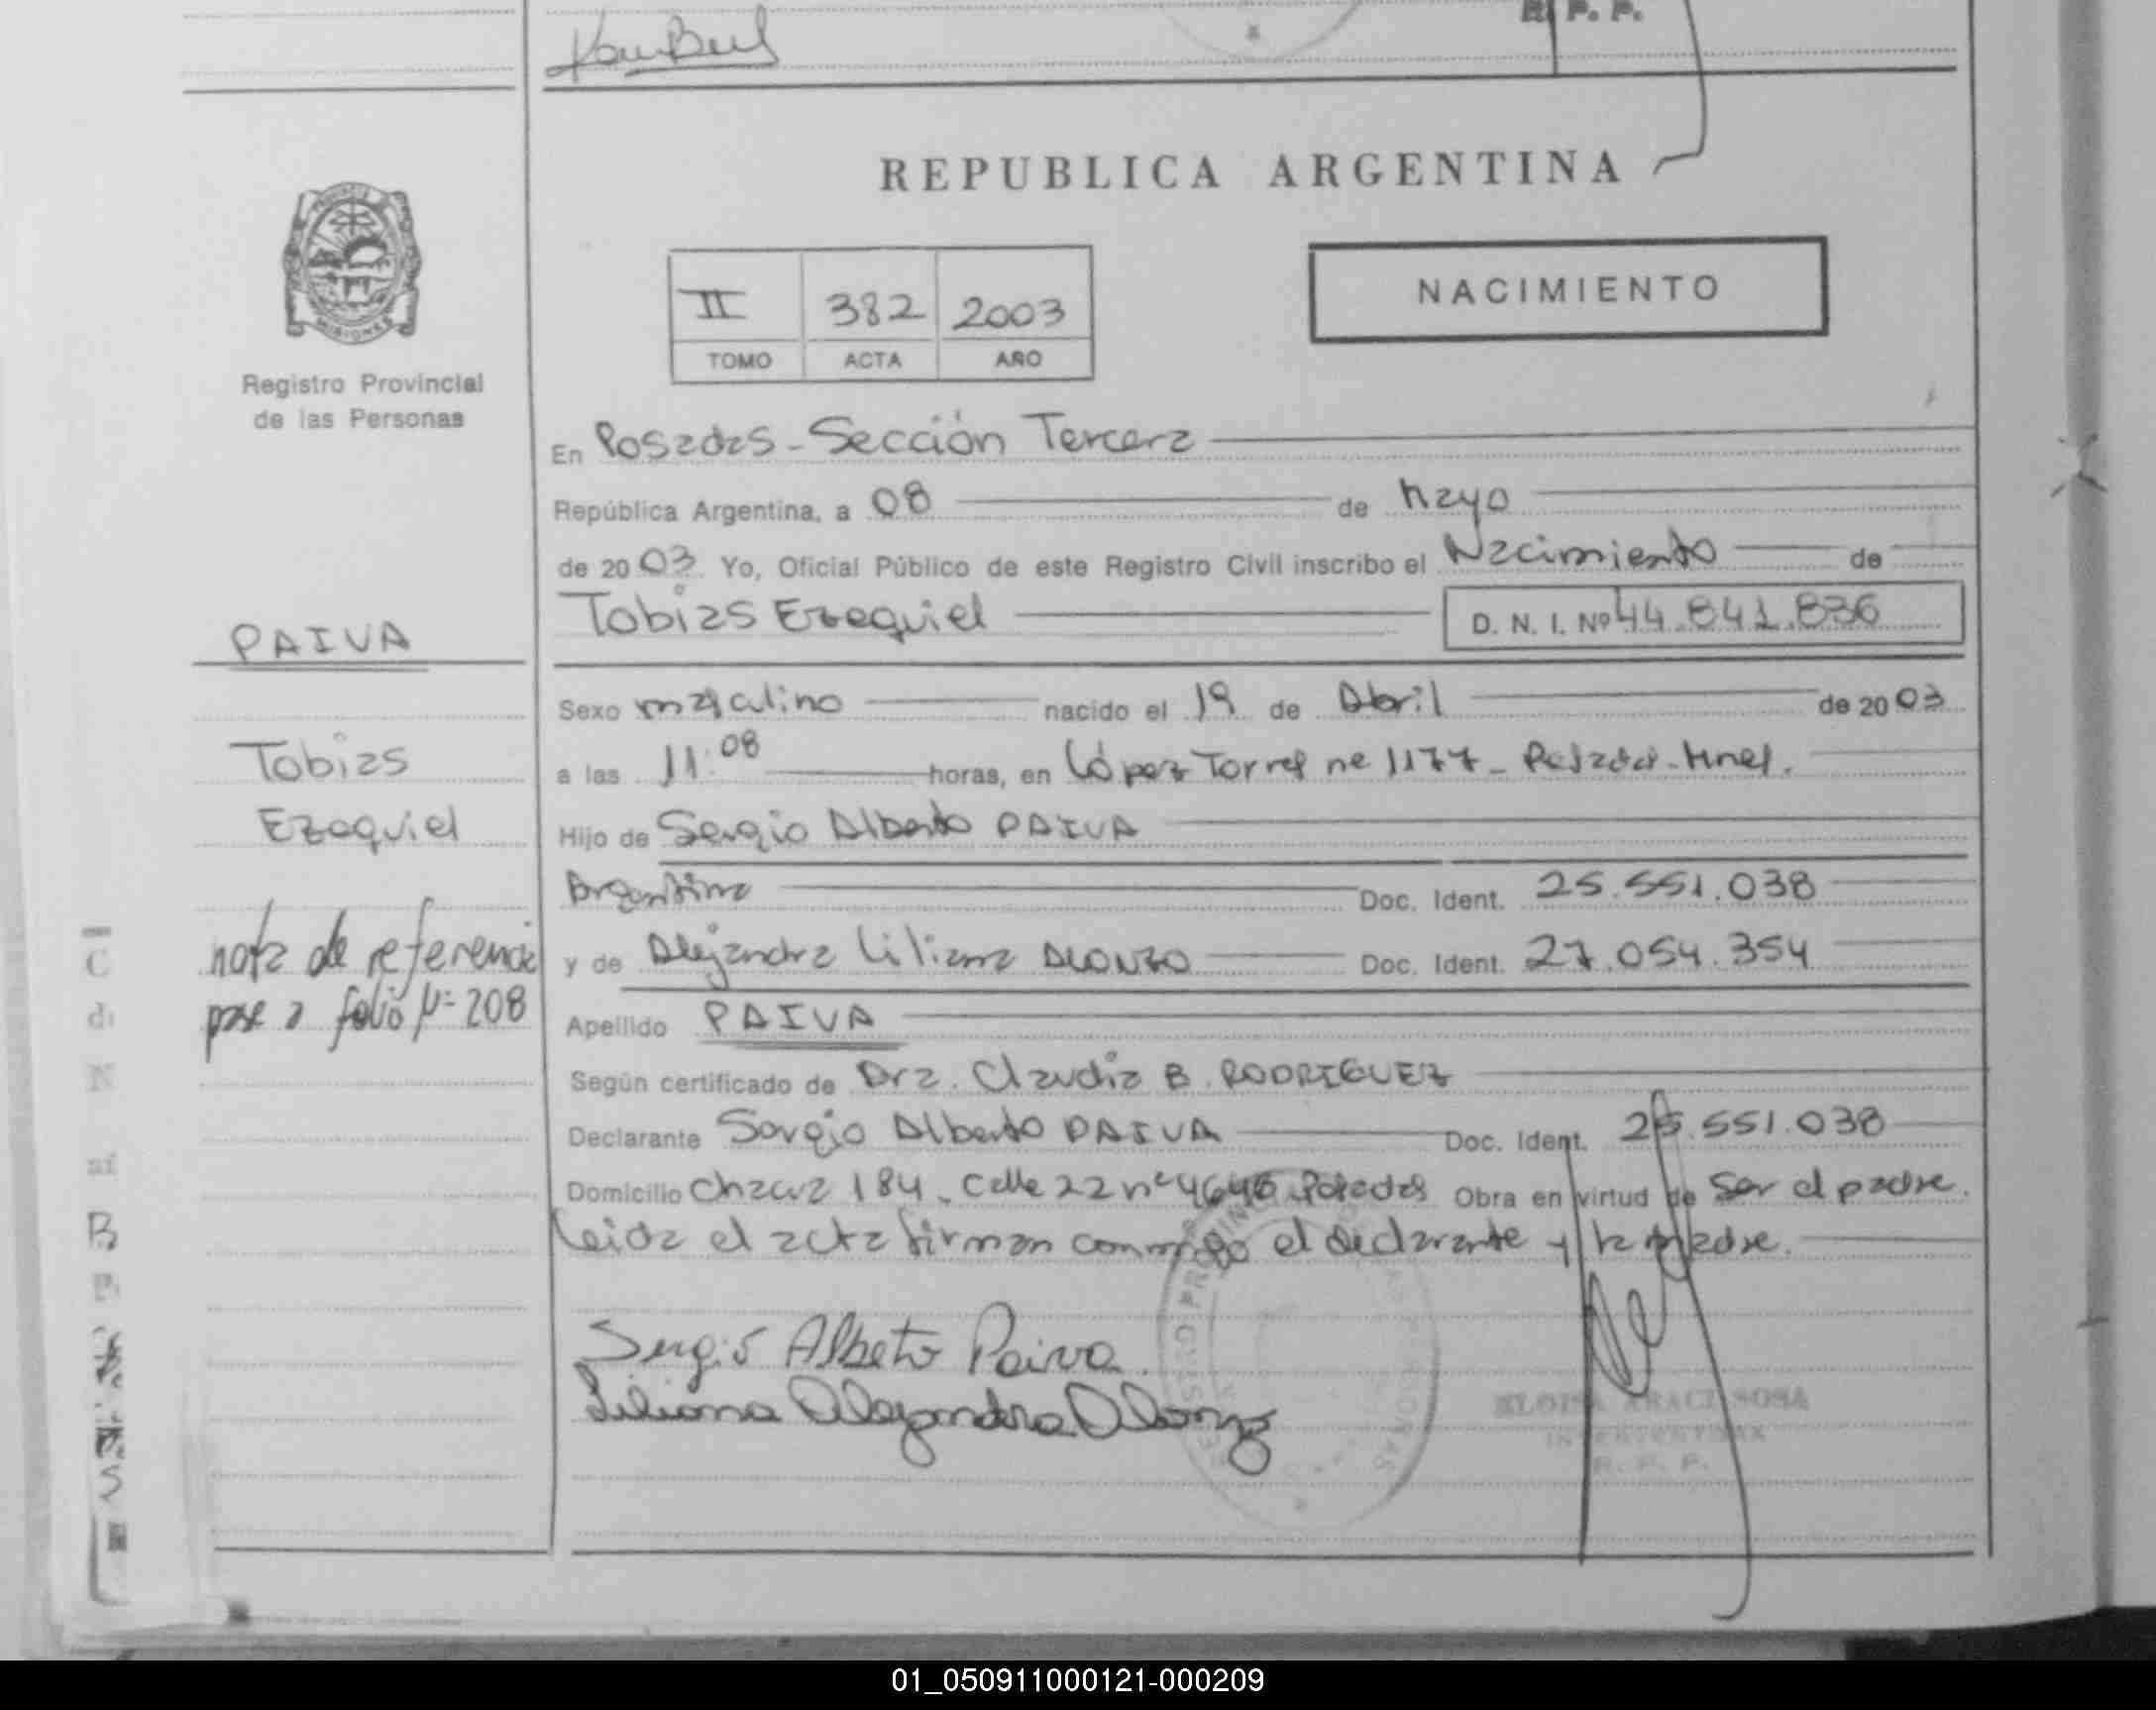 R. P. P.
REPUBLICA ARGENTINA
MISIONES
Registro Provincial
de las Personas
II 382 2003
TOMO ACTA AÑO
NACIMIENTO
En Posadas - Sección Tercera
República Argentina, a 08 de Mayo
de 2003 Yo, Oficial Público de este Registro Civil inscribo el Nacimiento de
Tobias Ezequiel D. N. I. Nº 44.841.836
PAIVA
Sexo masculino nacido el 19 de Abril de 2003
Tobias
a las 11:08 horas, en López Torres nº 1177 - Posadas - Mnes.
Ezequiel
Hijo de Sergio Alberto PAIVA
Argentina Doc. Ident. 25.551.038
nota de referencia
y de Alejandra Liliana ALONZO Doc. Ident. 27.054.354
pase a folio Nº 208
Apellido PAIVA
Según certificado de Dra. Claudia B. RODRIGUEZ
Declarante Sergio Alberto PAIVA Doc. Ident. 25.551.038
Domicilio Chacra 184 - Calle 22 nº 4646 Posadas Obra en virtud de ser el padre.
Leida el acta firman conmigo el declarante y la madre.
Sergio Alberto Paiva
Liliana Alejandra Alonzo
ELOISA ARACI SOSA
R. P. P.
01_050911000121-000209